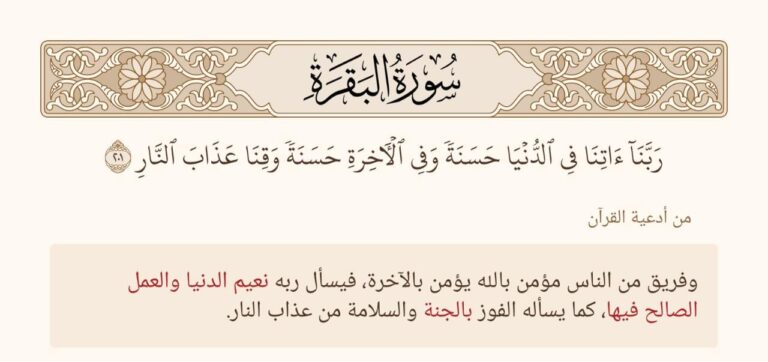 سُورَةُ البَقَرَةِ
رَبَّنَآ ءَاتِنَا فِي ٱلدُّنۡيَا حَسَنَةٗ وَفِي ٱلۡأٓخِرَةِ حَسَنَةٗ وَقِنَا عَذَابَ ٱلنَّارِ ٢٠١
من أدعية القرآن
وفريق من الناس مؤمن بالله يؤمن بالآخرة، فيسأل ربه نعيم الدنيا والعمل
الصالح فيها، كما يسأله الفوز بالجنة والسلامة من عذاب النار.